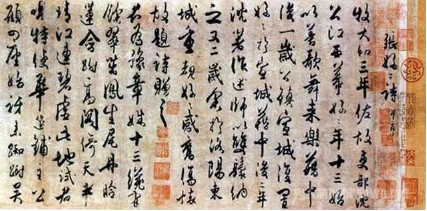 張好好詩 并序
牧大和三年佐故吏部沈
公江西幕好好年十三始
以善歌舞来樂籍中
後一歲公鎮宣城復置
好好於宣城籍中後二年
沈著作述師以雙鬟納
之又二歲余於洛陽東
城重覩好好感舊傷懷
故題詩贈之
君為豫章姝十三纔有
餘翠茁鳳生尾丹臉
蓮含跗高閣倚天半
晴江連碧虛此地試君
唱特使華筵鋪主公
顧四座始訝来踟蹰吴